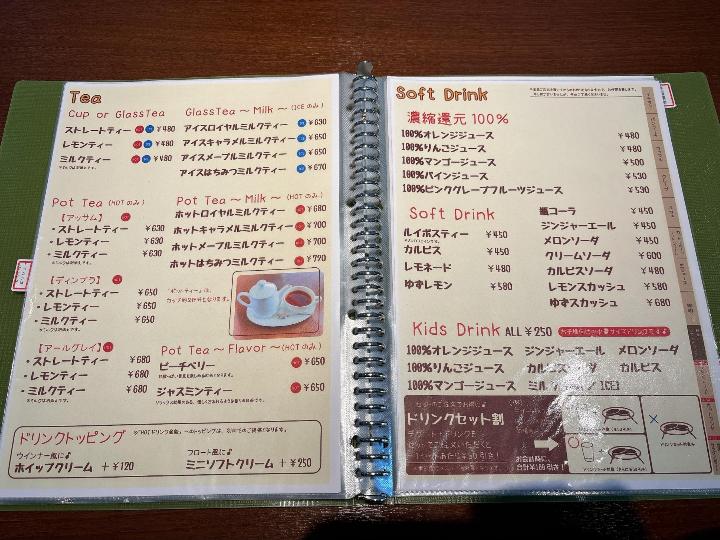 Tea
Cup or GlassTea
ストレートティー ¥480
レモンティー ¥480
ミルクティー ¥480
GlassTea ~ Milk ~ (ICEのみ)
アイスロイヤルミルクティー ¥630
アイスキャラメルミルクティー ¥650
アイスメープルミルクティー ¥650
アイスはちみつミルクティー ¥670
Pot Tea (HOTのみ)
【アッサム】
・ストレートティー ¥630
・レモンティー ¥630
・ミルクティー ¥630
【ディンブラ】
・ストレートティー ¥650
・レモンティー ¥650
・ミルクティー ¥650
【アールグレイ】
・ストレートティー ¥680
・レモンティー ¥680
・ミルクティー ¥680
Pot Tea ~ Milk ~ (HOTのみ)
ホットロイヤルミルクティー ¥680
ホットキャラメルミルクティー ¥700
ホットメープルミルクティー ¥700
ホットはちみつミルクティー ¥720
Pot Tea ~ Flavor ~ (HOTのみ)
ピーチベリー ¥650
ジャスミンティー ¥650
ドリンクトッピング
ウインナー風に♪
ホイップクリーム +¥120
フロート風に♪
ミニソフトクリーム +¥250
Soft Drink
濃縮還元 100%
100%オレンジジュース ¥480
100%りんごジュース ¥480
100%マンゴージュース ¥500
100%パインジュース ¥530
100%ピンクグレープフルーツジュース ¥530
Soft Drink
ルイボスティー ¥450
カルピス ¥450
レモネード ¥480
ゆずレモン ¥580
瓶コーラ ¥450
ジンジャーエール ¥450
メロンソーダ ¥450
クリームソーダ ¥600
カルピスソーダ ¥480
レモンスカッシュ ¥580
ゆずスカッシュ ¥680
Kids Drink ALL ¥250
100%オレンジジュース ジンジャーエール メロンソーダ
100%りんごジュース カルピスソーダ カルピス
100%マンゴージュース
ドリンクセット割